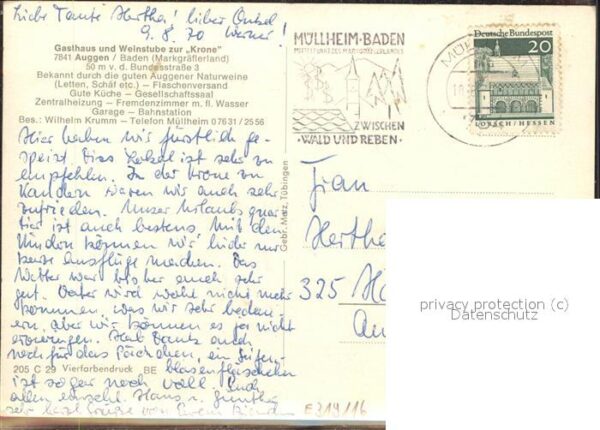 Liebe Tante Hertha! lieber Onkel
9.8.70 Werner!
Gasthaus und Weinstube zur „Krone"
7841 Auggen / Baden (Markgräflerland)
50 m v. d. Bundesstraße 3
Bekannt durch die guten Auggener Naturweine
(Letten, Schäf etc.) – Flaschenversand
Gute Küche – Gesellschaftssaal
Zentralheizung – Fremdenzimmer m. fl. Wasser
Garage – Bahnstation
Bes.: Wilhelm Krumm – Telefon Müllheim 07631 / 2556
Hier haben wir fürstlich ge-
speist. Das Lokal ist sehr zu
empfehlen. In der Krone zu
Kandern waren wir auch sehr
zufrieden. Unser Urlaubsquar
tier ist auch bestens. Mit den
Kindern können wir leider nur
kurze Ausflüge machen. Das
Wetter war bisher auch sehr
gut. Vater wird wohl nicht mehr
kommen, was wir sehr bedau-
ern, aber wir können es ja nicht
erzwingen. Hab Dank auch
noch für das Päckchen, ein Seifen-
blasenfläschchen
ist sogar noch voll. Euch
allen herzl. Hans u. Günther
sehr herzl. Grüße von Eurem
205 C 29 Vierfarbendruck BE
Gebr. Metz, Tübingen
MÜLLHEIM · BADEN
MITTELPUNKT DES MARKGRÄFLERLANDES
ZWISCHEN
WALD UND REBEN
MÜL
Deutsche Bundespost
20
LORSCH / HESSEN
Frau
Hertha
325 Ha
An
E319116
privacy protection (c)
Datenschutz